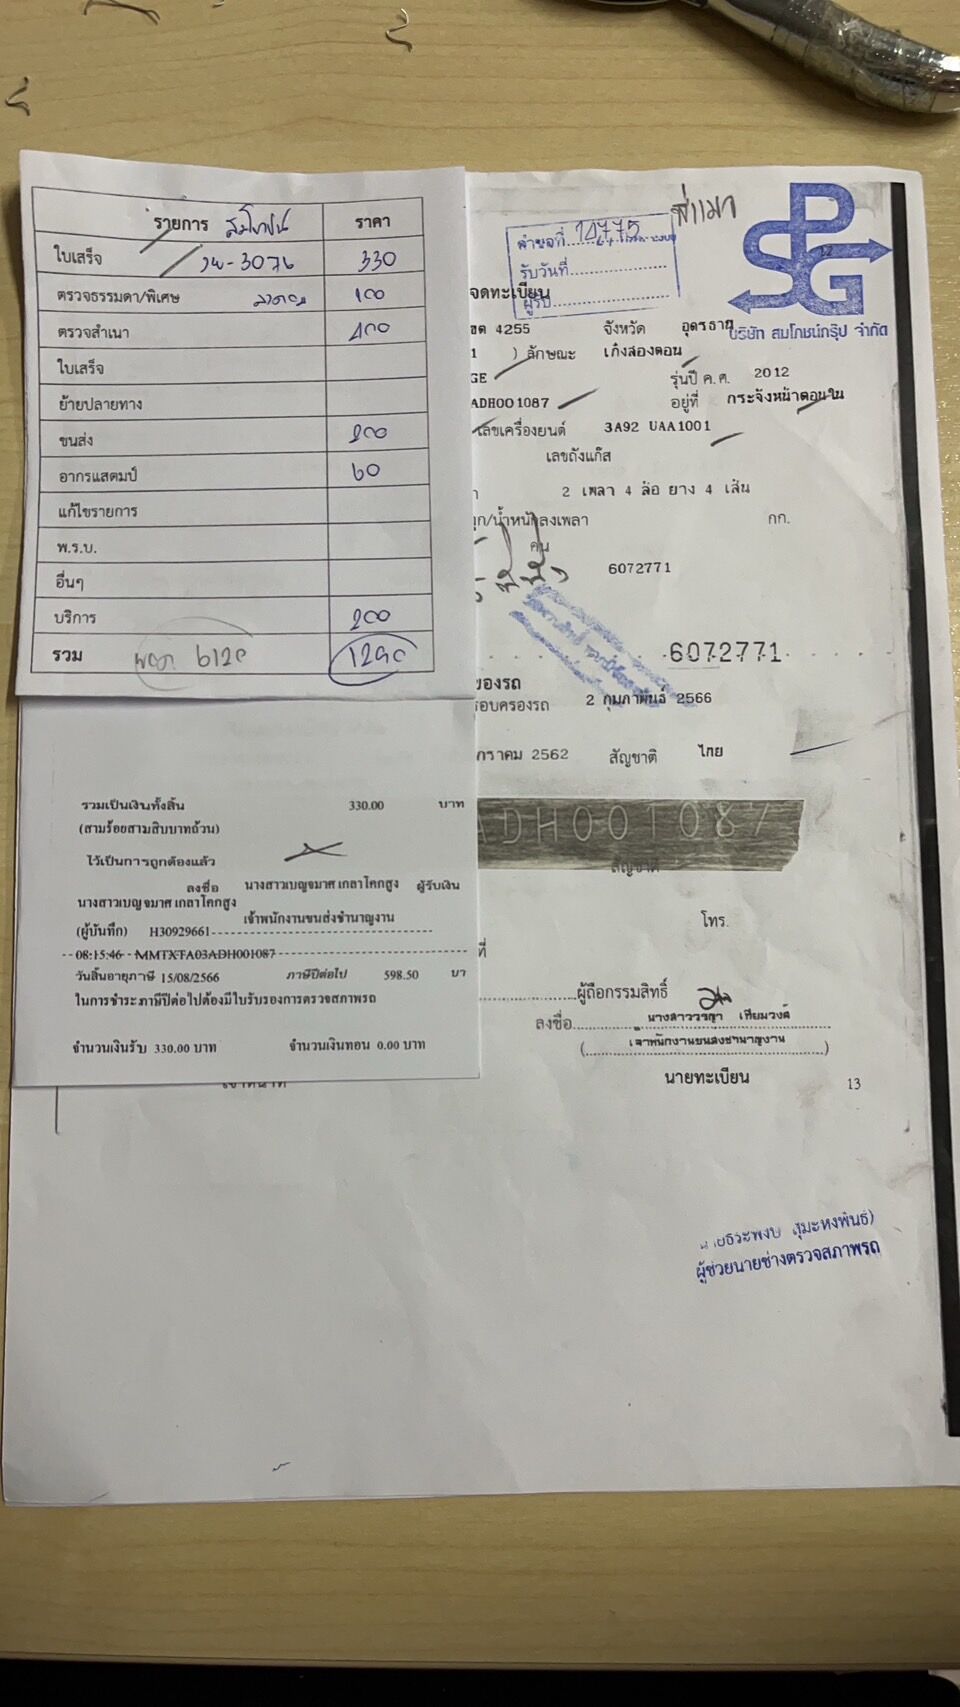 รายการ สมโภชน์ ราคา
ใบเสร็จ 3076 330
ตรวจธรรมดา/พิเศษ 100
ตรวจสำเนา 400
ใบเสร็จ
ย้ายปลายทาง
ขนส่ง 200
อากรแสตมป์ 60
แก้ไขรายการ
พ.ร.บ.
อื่นๆ
บริการ 200
รวม 6120 1290
ลำดับที่ 10775
รับวันที่
ผู้รับ
SPG
บริษัท สมโภชน์กรุ๊ป จำกัด
จดทะเบียน
4255 จังหวัด อุดรธานี
) ลักษณะ เก๋งสองตอน
GE รุ่นปี ค.ศ. 2012
ADH001087 อยู่ที่ กระจังหน้าตอนใน
เลขเครื่องยนต์ 3A92 UAA1001
เลขถังแก๊ส
2 เพลา 4 ล้อ ยาง 4 เส้น
/น้ำหนักลงเพลา กก.
คน
6072771
6072771
ของรถ
รอบครองรถ 2 กุมภาพันธ์ 2566
กราคม 2562 สัญชาติ ไทย
ADH001087
สัญชาติ
โทร.
ที่
ผู้ถือกรรมสิทธิ์
ลงชื่อ
เจ้าพนักงานขนส่งชำนาญงาน
นายทะเบียน 13
รวมเป็นเงินทั้งสิ้น 330.00 บาท
(สามร้อยสามสิบบาทถ้วน)
ไว้เป็นการถูกต้องแล้ว
ลงชื่อ นางสาวเบญจมาศ เกลาโคกสูง ผู้รับเงิน
นางสาวเบญจมาศ เกลาโคกสูง
เจ้าพนักงานขนส่งชำนาญงาน
(ผู้บันทึก) H30929661
08:15:46 MMTXTA03ADH001087
วันสิ้นอายุภาษี 15/08/2566 ภาษีปีต่อไป 598.50 บา
ในการชำระภาษีปีต่อไปต้องมีใบรับรองการตรวจสภาพรถ
จำนวนเงินรับ 330.00 บาท จำนวนเงินทอน 0.00 บาท
ผู้ช่วยนายช่างตรวจสภาพรถ